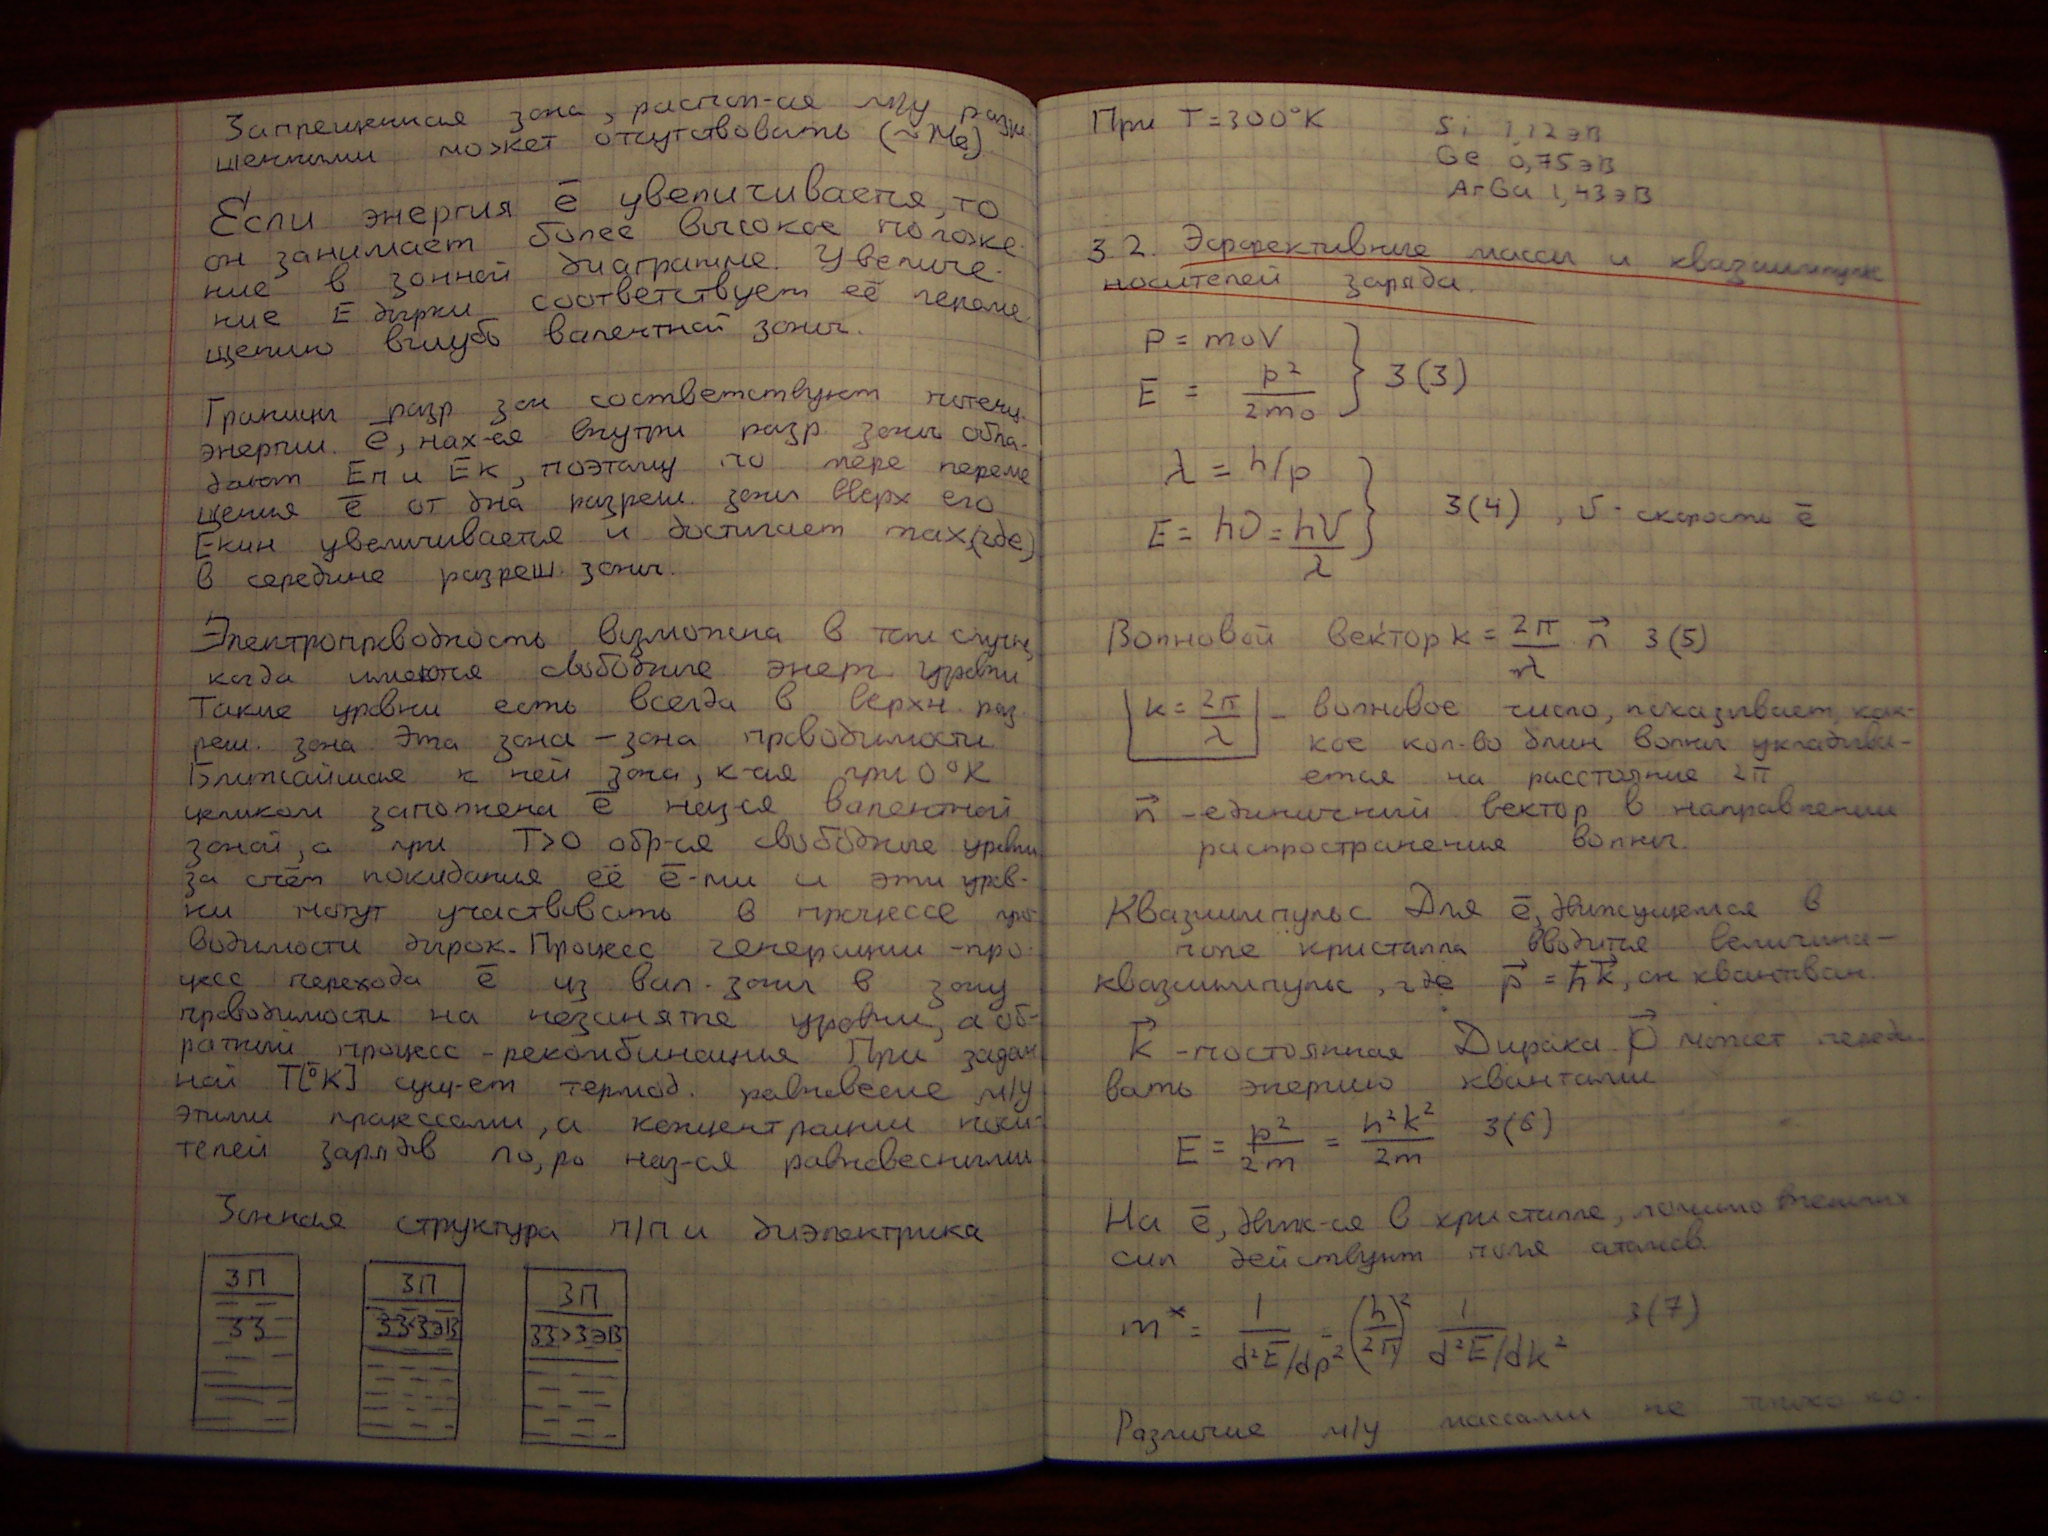 Запрещенная зона, распол-ая м/у разре
шенными может отсутствовать (~Ме)
Если энергия ē увеличивается, то
он занимает более высокое положе-
ние в зонной диаграмме. Увеличе-
ние E дырки соответствует её переме-
щению вглубь валентной зоны.
Границы разр зон соответствуют потенц.
энергии. ē, нах-ся внутри разр. зоны обла-
дают Eп и Eк, поэтому по мере переме
щения ē от дна разреш. зоны вверх его
Eкин увеличивается и достигает max (где)
в середине разреш. зоны.
Электропроводность возможна в том случ,
когда имеются свободные энерг уровни
Такие уровни есть всегда в верхн. раз
реш. зона. Эта зона – зона проводимости
Ближайшая к ней зона, к-ая при 0°K
целиком заполнена ē наз-ся валентной
зоной, а при T>0 обр-ся свободные уровни
за счёт покидания её ē-ми и эти уров-
ни могут участвовать в процессе про
водимости дырок. Процесс генерации – про-
цесс перехода ē из вал. зоны в зону
проводимости на незанятые уровни, а об-
ратный процесс – рекомбинация При задан
ной T[°K] сущ-ет термод. равновесие м/у
этими процессами, а концентрации носи-
телей зарядов no, po наз-ся равновесными
Зонная структура п/п и диэлектрика
ЗП ЗП ЗП
ЗЗ ЗЗ<3эВ ЗЗ>3эВ
При T=300°K Si 1,12эВ
Ge 0,75эВ
ArGa 1,43эВ
3.2. Эффективные массы и квазиимпульс
носителей заряда.
P = m0V
E = p²/2m0 } 3(3)
λ = h/p
E = hν = hV/λ } 3(4), v - скорость ē
Волновой вектор k = 2π/λ · n⃗ 3(5)
k = 2π/λ – волновое число, показывает, как-
кое кол-во длин волны укладыва-
ется на расстояние 2π
n⃗ – единичный вектор в направлении
распространения волны.
Квазиимпульс. Для ē, движущемся в
поле кристалла вводится величина –
квазиимпульс, где p⃗ = ħk⃗, он квантован.
k⃗ – постоянная Дирака. p⃗ может переда-
вать энергию квантами
E = p²/2m = h²k²/2m 3(6)
На ē, движ-ся в кристалле, помимо внешних
сил действуют поля атомов.
m* = 1/d²E/dp² = (h/2π)² 1/d²E/dk² 3(7)
Различие м/у массами не только ко-